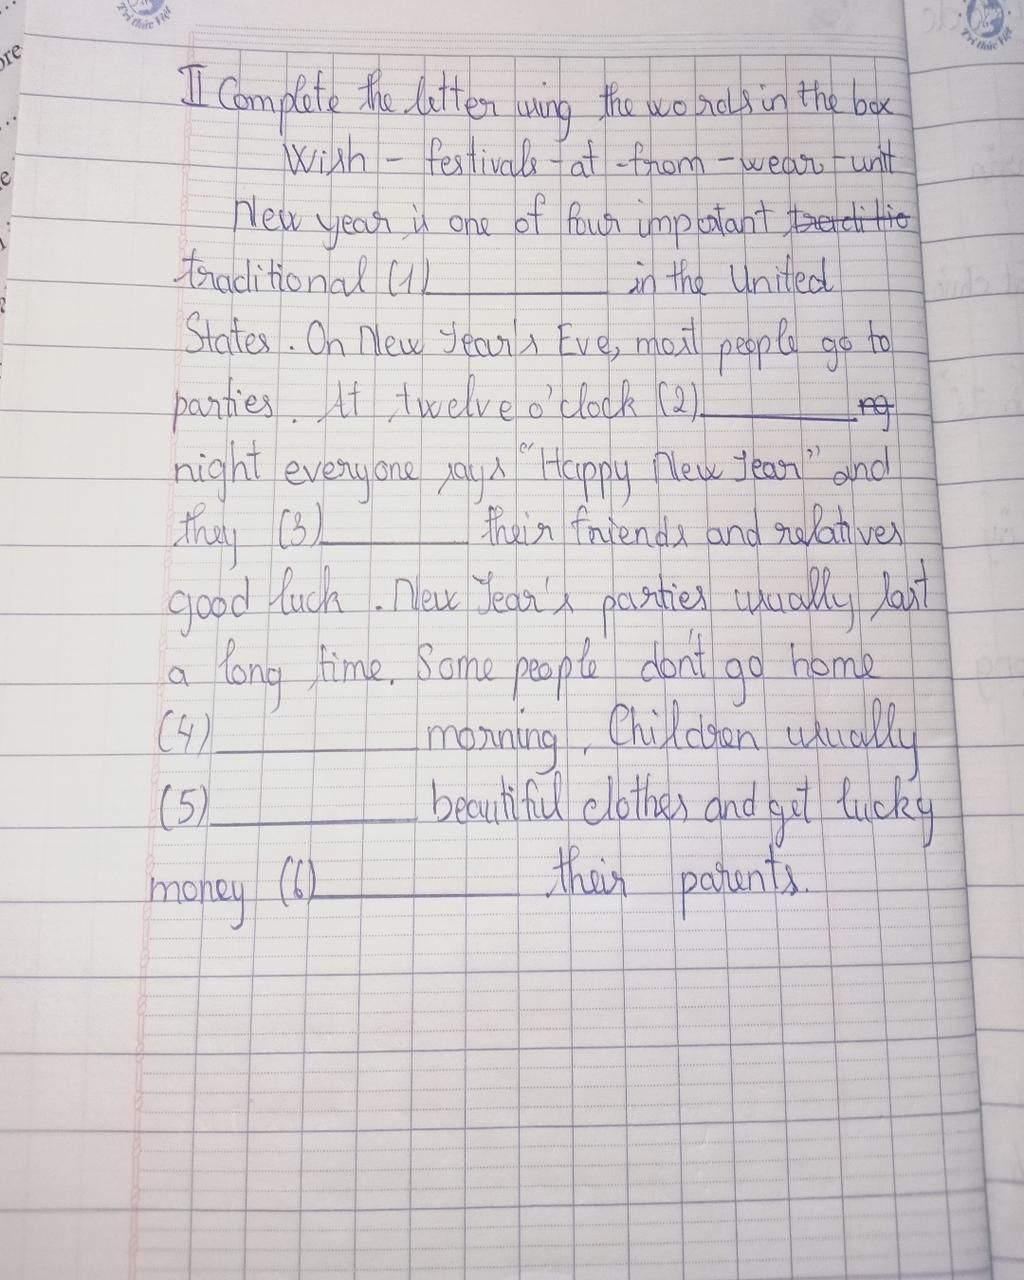 Tri thức Việt
Tri thức Việt
ore
II Complete the letter using the words in the box
Wish - festivals - at - from - wear - until
New year is one of four impotant traditio
traditional (1)__________ in the United
States. On New Year's Eve, most people go to
parties. At twelve o'clock (2)__________ ng
night everyone says "Happy New Year" and
they (3)__________ their friends and relatives
good luck. New Year's parties usually last
a long time. Some people don't go home
(4)__________ morning. Children usually
(5)__________ beautiful clothes and get lucky
money (6)__________ their parents.